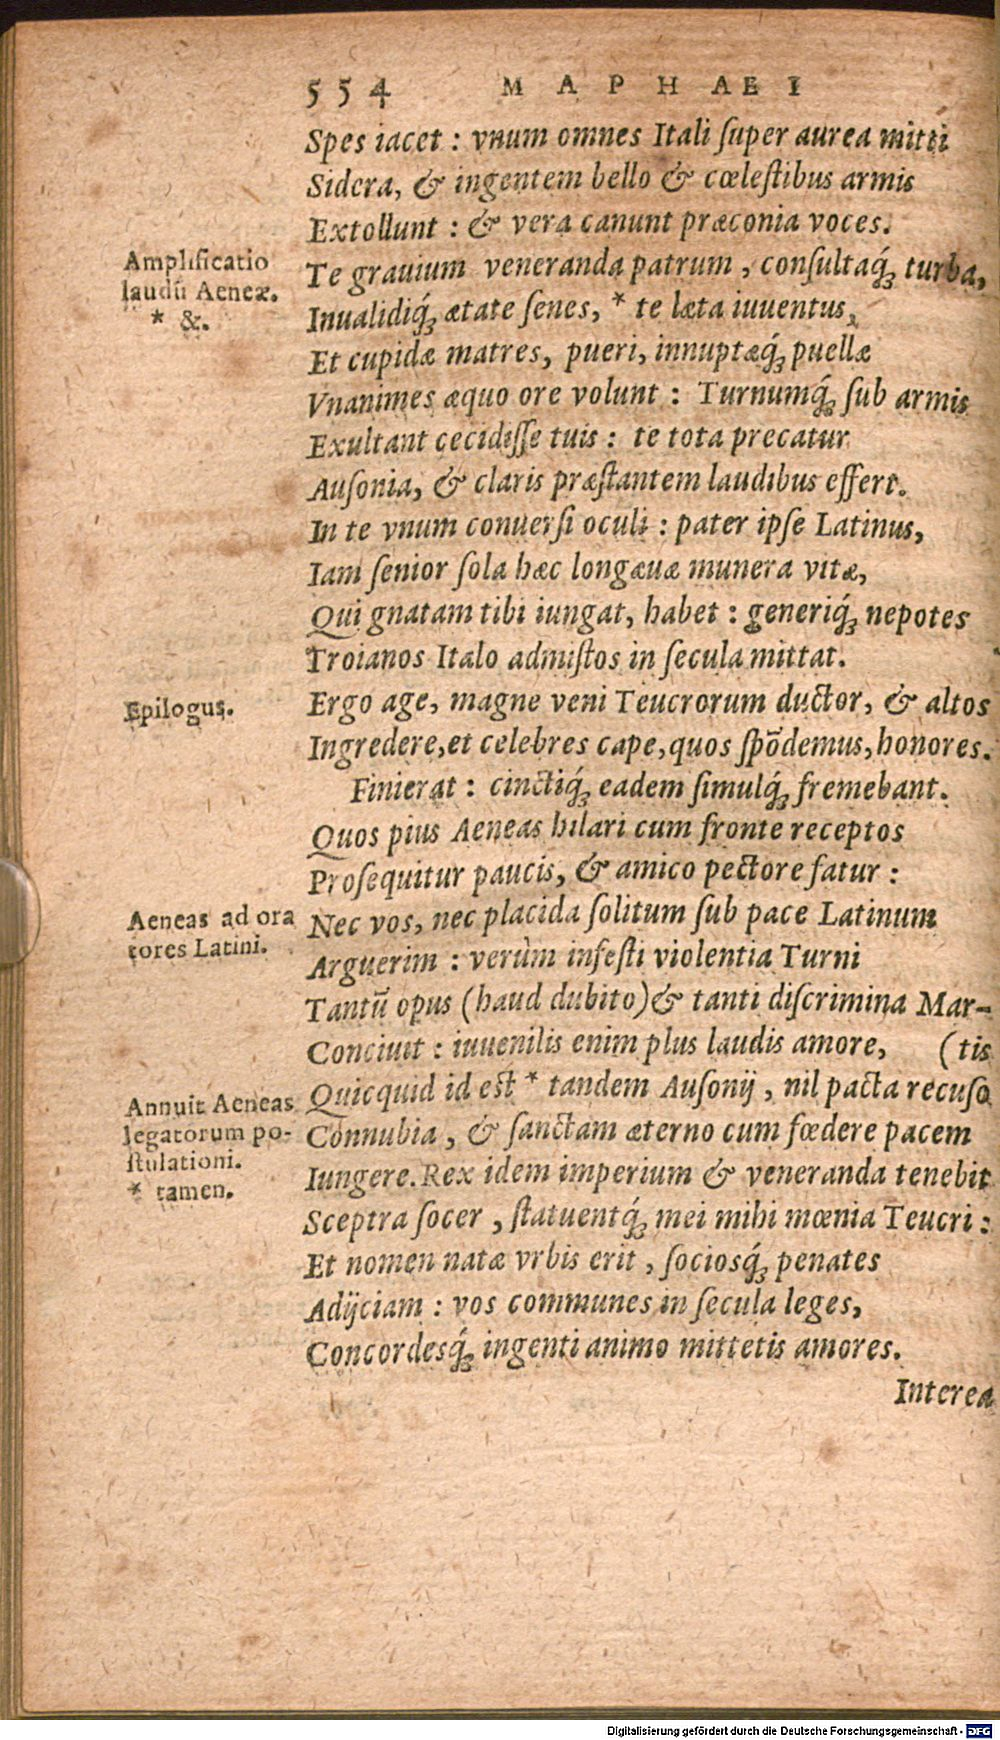 554 MAPHAEI
Spes iacet : vnum omnes Itali ſuper aurea mitti
Sidera, & ingentem bello & cœleſtibus armis
Extollunt : & vera canunt præconia voces.
Amplificatio
laudū Aeneæ.
* &.
Te grauium veneranda patrum, conſultaq́ꝫ turba,
Inualidiq́ꝫ ætate ſenes, * te læta iuuentus,
Et cupidæ matres, pueri, innuptæq́ꝫ puellæ
Vnanimes æquo ore volunt : Turnumq́ꝫ ſub armis
Exultant cecidiſſe tuis : te tota precatur
Auſonia, & claris præſtantem laudibus effert.
In te vnum conuerſi oculi : pater ipſe Latinus,
Iam ſenior ſola hæc longæuæ munera vitæ,
Qui gnatam tibi iungat, habet : generiq́ꝫ nepotes
Troianos Italo admiſtos in ſecula mittat.
Epilogus.
Ergo age, magne veni Teucrorum ductor, & altos
Ingredere, et celebres cape, quos ſpōdemus, honores.
Finierat : cinctiq́ꝫ eadem ſimulq́ꝫ fremebant.
Quos pius Aeneas hilari cum fronte receptos
Proſequitur paucis, & amico pectore fatur :
Aeneas ad ora
tores Latini.
Nec vos, nec placida ſolitum ſub pace Latinum
Arguerim : verùm infeſti violentia Turni
Tantū opus (haud dubito) & tanti diſcrimina Mar-
Conciuit : iuuenilis enim plus laudis amore, (tis
Annuit Aeneas
legatorum po-
ſtulationi.
* tamen.
Quicquid id eſt * tandem Auſonij, nil pacta recuſo
Connubia, & ſanctam æterno cum fœdere pacem
Iungere. Rex idem imperium & veneranda tenebit
Sceptra ſocer, ſtatuentq́ꝫ mei mihi mœnia Teucri :
Et nomen natæ vrbis erit, ſociosq́ꝫ penates
Adijciam : vos communes in ſecula leges,
Concordesq́ꝫ ingenti animo mittetis amores.
Interea
Digitalisierung gefördert durch die Deutsche Forschungsgemeinschaft - DFG